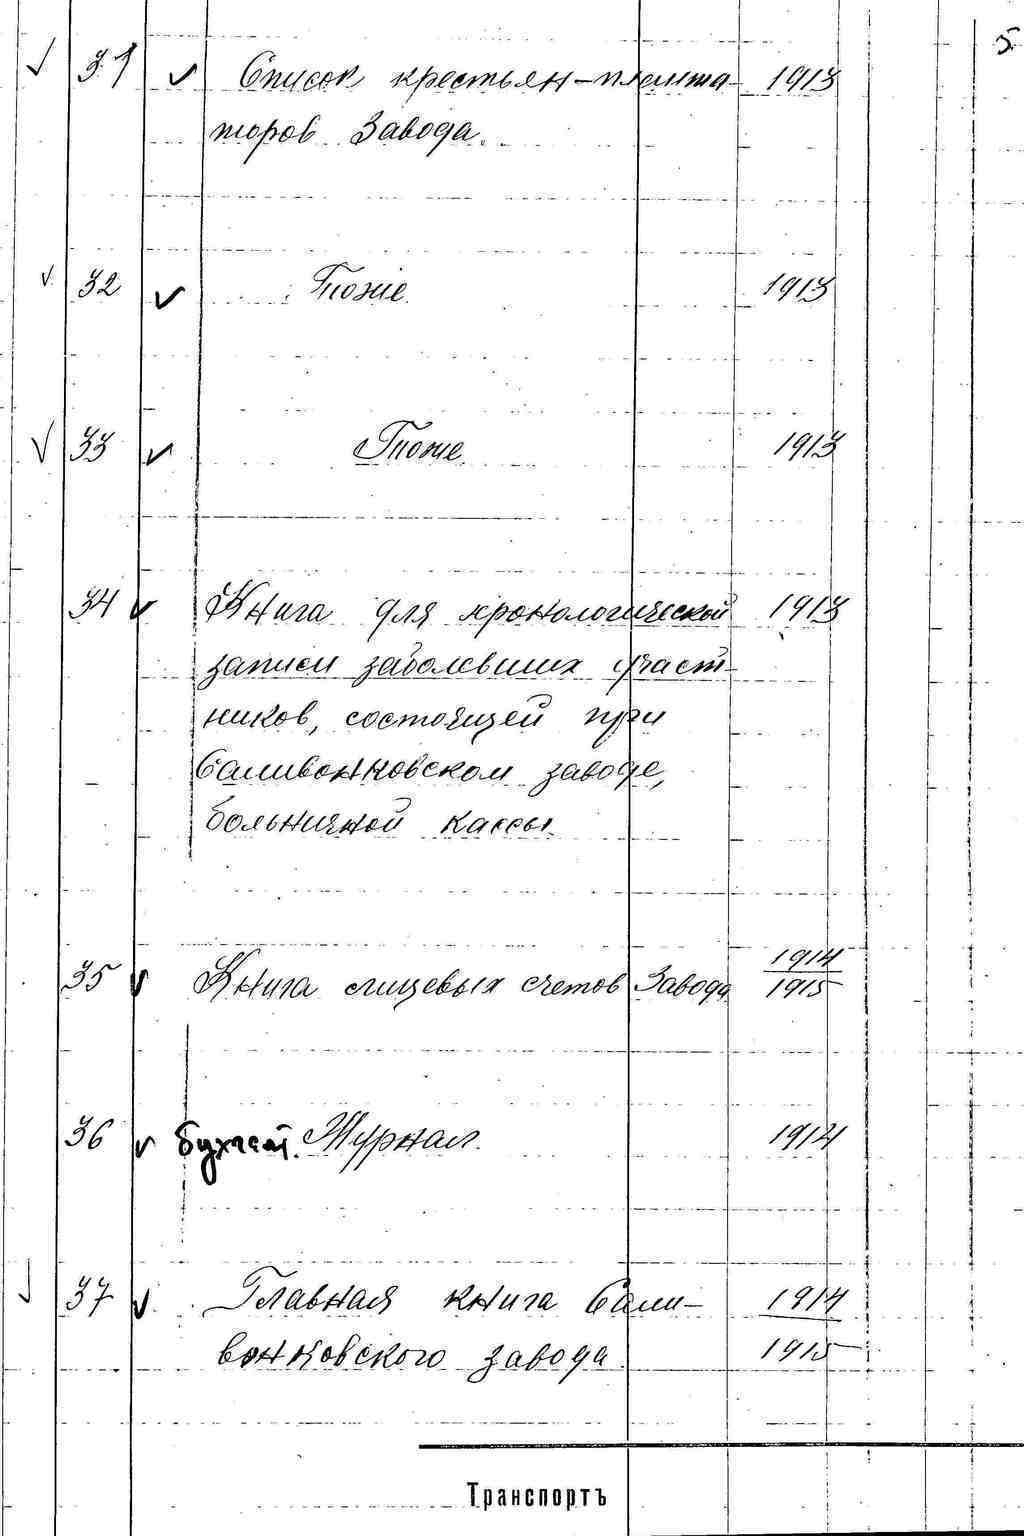 5.
31 Список крестьян-планта- 1913
торов Завода.
32 Тоже 1913
33 Тоже 1913
34 Книга для хронологической 1913
записи заболевших участ-
ников, состоящей при
Саливонковском заводе,
больничной кассы.
35 Книга лицевых счетов Завода 1914
1915
36 бухгалт. Журнал. 1914
37 Главная книга Сали- 1914
вонковского завода 1915
Транспортъ